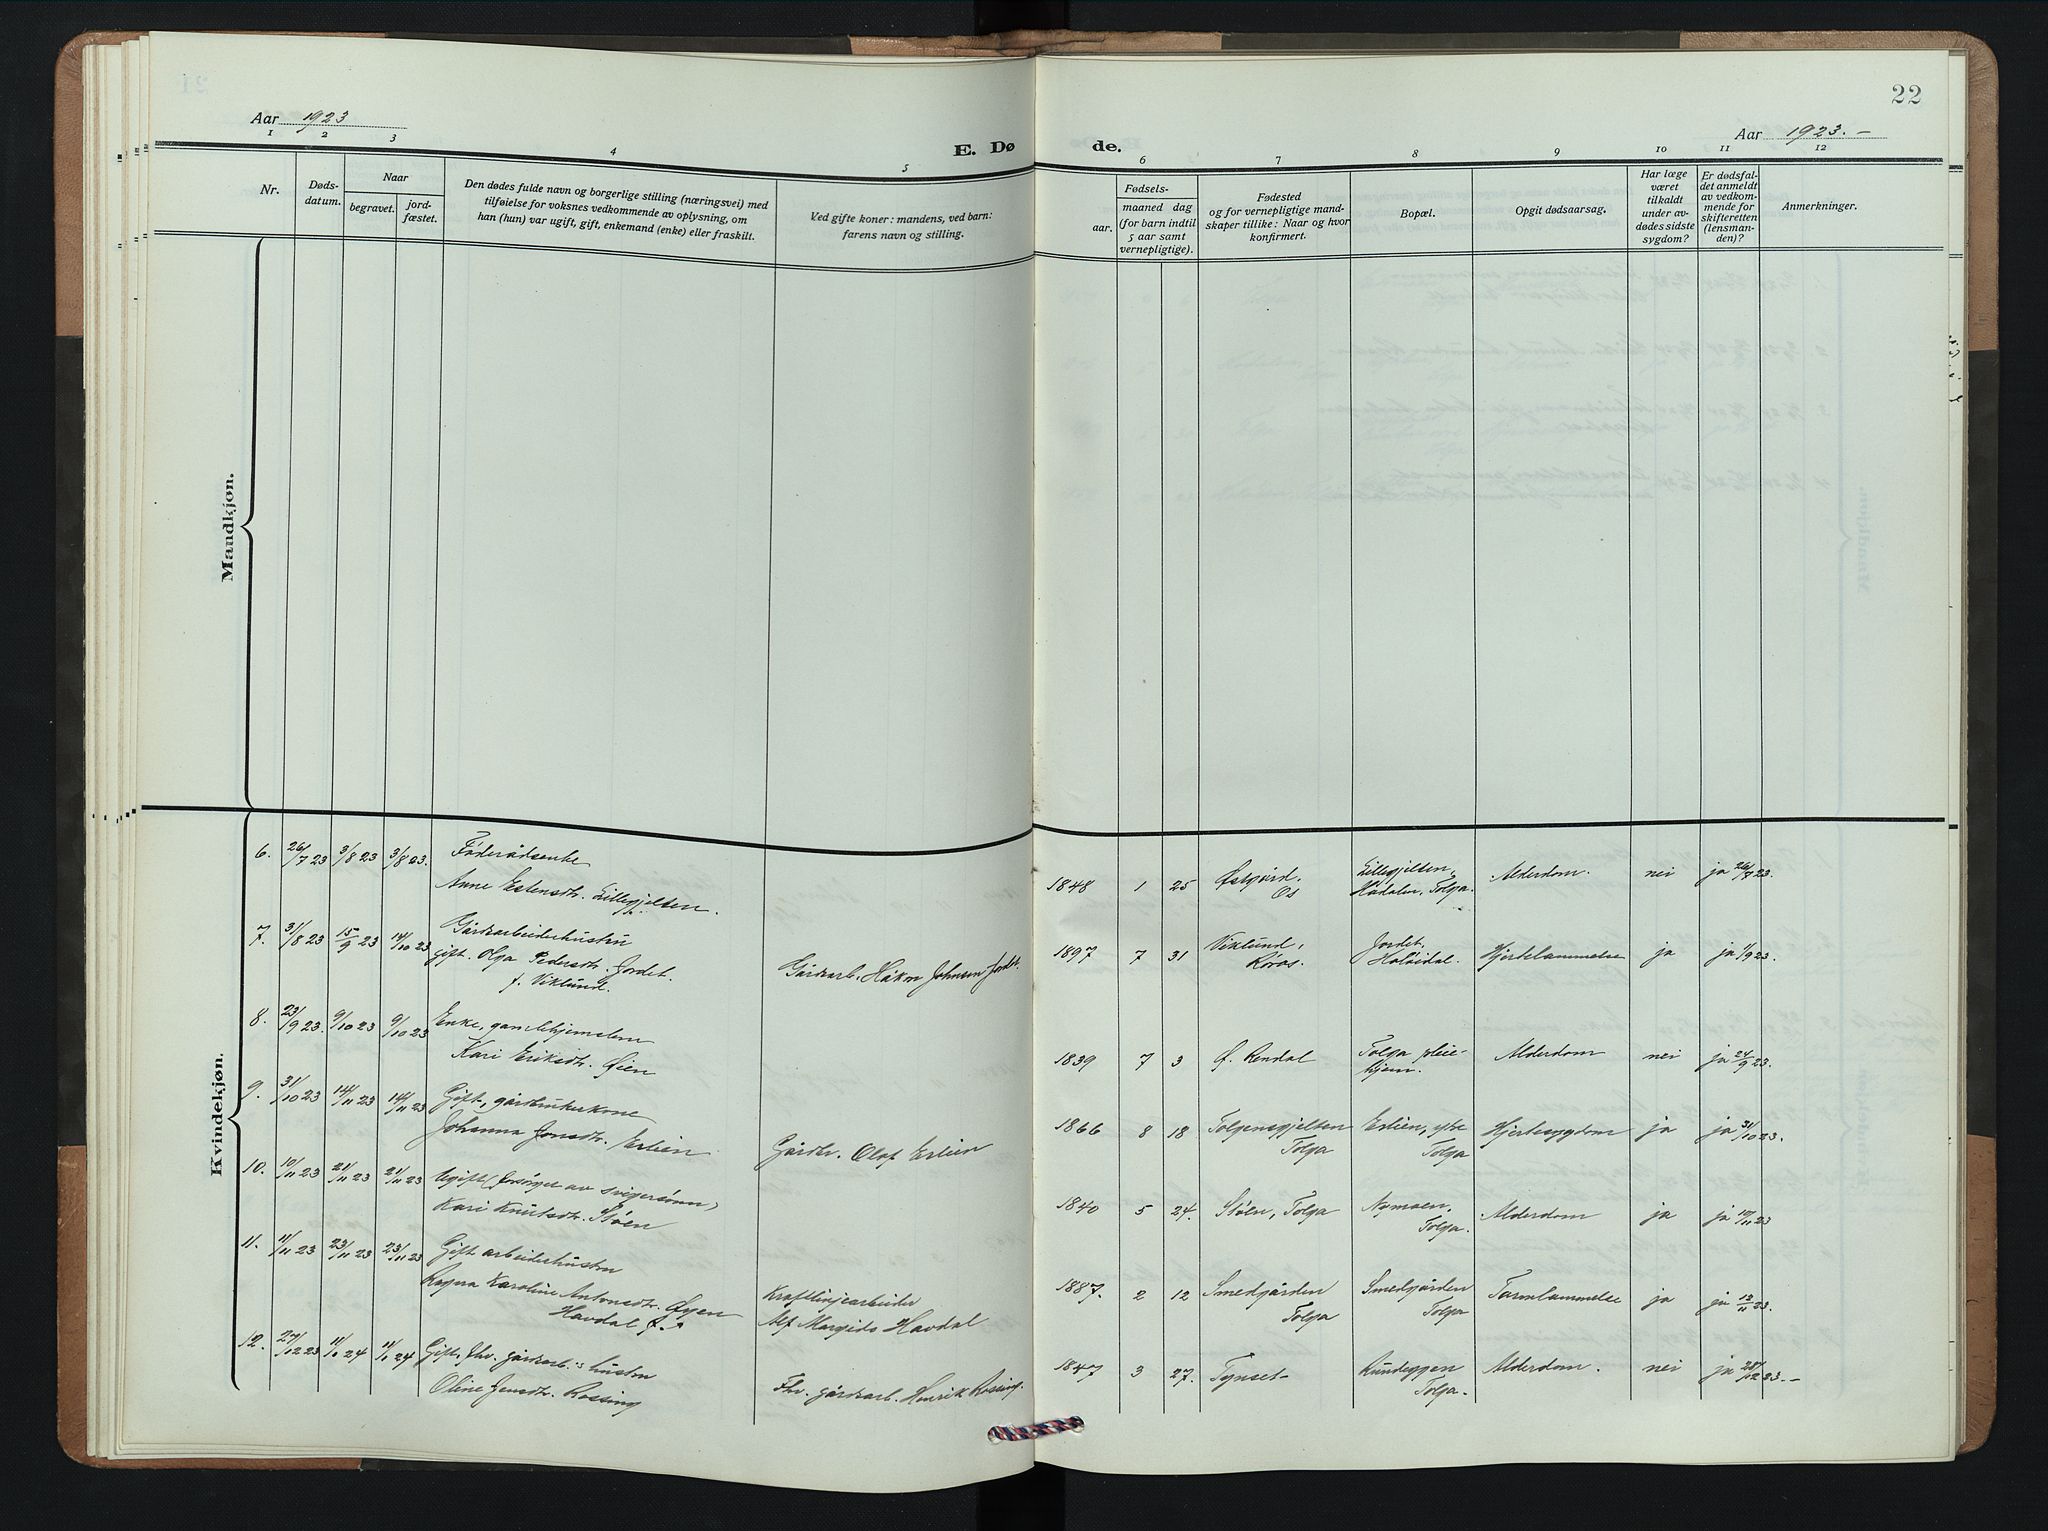 22
Aar 1923
Aar 1923.-
E. Dø
de.
1 2 3 4 5 6 7 8 9 10 11 12
Nr.
Døds-
datum.
Naar
begravet.
jord-
fæstet.
Den dødes fulde navn og borgerlige stilling (næringsvei) med
tilføielse for voksnes vedkommende av oplysning, om
han (hun) var ugift, gift, enkemand (enke) eller fraskilt.
Ved gifte koner: mandens, ved barn:
farens navn og stilling.
Fødsels-
aar.
maaned dag
(for barn indtil
5 aar samt
vernepligtige).
Fødested
og for vernepligtige mand-
skaper tillike: Naar og hvor
konfirmert.
Bopæl.
Opgit dødsaarsag.
Har læge
været
tilkaldt
under av-
dødes sidste
sygdom?
Er dødsfal-
det anmeldt
av vedkom-
mende for
skifteretten
(lensman-
den)?
Anmerkninger.
Mandkjøn.
Kvindekjøn.
6. 26/7 23 3/8 23 3/8 23. Føderådsenke
Anne Estensdtr. Lillegjelten.
1848 1 25 Østgård, Os Lillegjelten, Hådalen, Tolga. Alderdom. nei ja 26/7 23.
7. 31/8 23 15/9 23 14/10 23 Gårdarbeiderhustru
gift. Olga Pedersdtr. Jordet.
f. Viklund.
Gårdarb. Håkon Johnsen Jordet.
1897 7 31 Viklund, Røros. Jordet, Holøidal. Hjertelammelse ja ja 1/9 23.
8. 23/9 23. 9/10 23 9/10 23 Enke, gamlehjemslem
Kari Eriksdtr. Øien
1839 7 3 Ø. Rendal Tolga pleie-
hjem. Alderdom nei ja 24/9 23.
9. 31/10 23 14/11 23 14/11 23 Gift, gårdbrukerkone
Johanna Jonsdtr. Erlien
Gårdbr. Olaf Erlien
1866 8 18 Tolgensgjelten Tolga Erlien, ytre Tolga Hjertesygdom ja ja 31/10 23.
10. 10/11 23 21/11 23 21/11 23 Ugift (forsørget av svigersønn)
Kari Knutsdtr. Støen
1840 5 24. Støen, Tolga Nymoen, Tolga. Alderdom ja ja 10/11 23
11. 11/11 23 23/11 23 23/11 23 Gift arbeiderhustru
Ragna Karoline Antonsdtr. Øyen
Havdal f.
Kraftlinjearbeider
Alf Margido Havdal
1887. 2 12 Smedgården Tolga Smedgården Tolga Tarmlammelse ja ja 12/11 23.
12. 27/12 23 11/1 24 11/1 24 Gift, fhv. gårdarb.s hustru
Oline Jensdtr. Rossing
Fhv. gårdarb. Henrik Rossing.
1847 3 27. Tynset- Rundeggen Tolga. Alderdom. nei ja 28/12 23.-